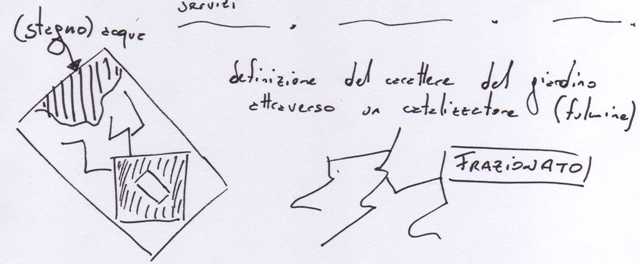 servizi
(stagno) acqua
definizione del carattere del giardino
attraverso un catalizzatore (fulmine)
FRAZIONATO